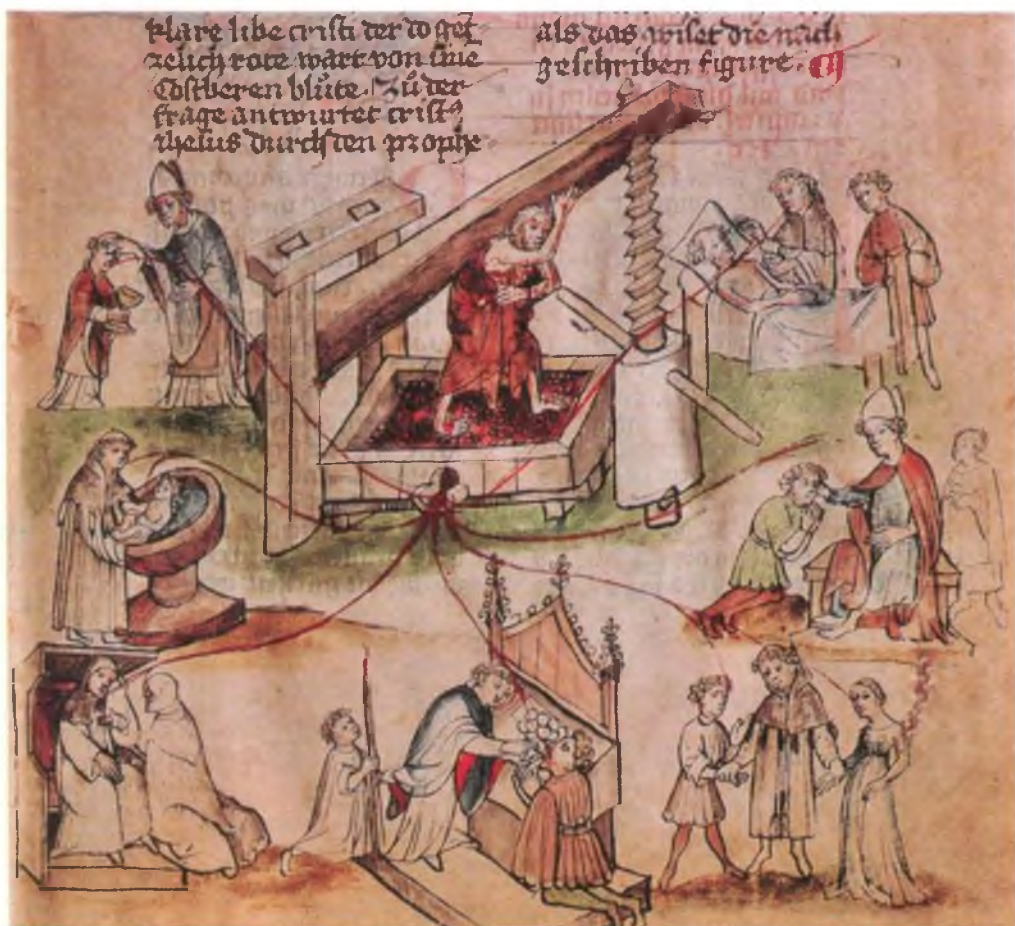 klare libe cristi der do getz
zelich rote wart von sine
Costberen blůte. Zů der
frage antwurtet crist9
ihesus durch den prophe
als das wiset die nach
geschriben figure.